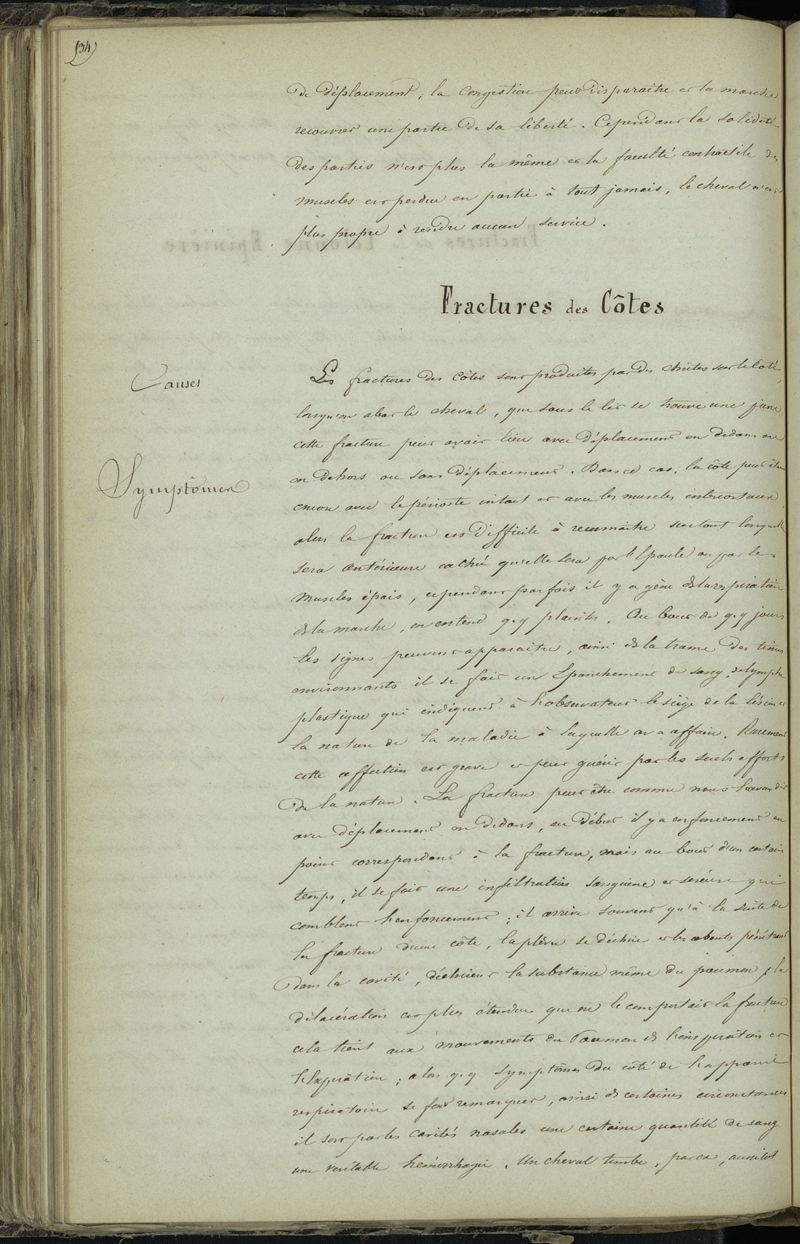 134
de déplacement, la congestion peut disparaître et la marche
recouvrer une partie de sa liberté. Cependant la solidité
des parties n'est plus la même et la faculté contractile des
muscles est perdue en partie à tout jamais, le cheval n'est
plus propre à rendre aucun service.
Fractures des Côtes
Causes
Les fractures des côtes sont produites par des chûtes sur le côté,
lorsqu'on abat le cheval, que sous le lit se trouve une
cette fracture peut avoir lieu avec déplacement en dedans ou
en dehors ou sans déplacement. Dans ce cas, la côte peut être
Symptômes
avec le périoste intact et avec les muscles intercostaux,
alors la fracture est difficile à reconnaître surtout lorsqu'elle
sera antérieure cachée qu'elle sera par l'épaule ou par les
muscles épais, cependant parfois il y a gêne de la respiration
de la marche, on entend q.q plaintes. Au bout de q.q jours
les signes peuvent apparaître, ainsi de la trame des tissus
environnants il se fait un épanchement de sang, de lymphe
plastique qui indiquent à l'observateur le siège de la lésion et
la nature de la maladie à laquelle on a affaire. Rarement
cette affection est grave et peut guérir par les seuls efforts
de la nature. La fracture peut être comme nous l'avons dit
avec déplacement en dedans, au début il y a enfoncement au
point correspondant à la fracture, mais au bout d'un certain
temps, il se fait une infiltration sanguine et séreuse qui
comblent l'enfoncement; il arrive souvent qu'à la suite de
la fracture d'une côte, la plèvre se déchire et les abouts pénétrant
dans la cavité, déchirent la substance même du poumon, la
dilacération est plus étendue que ne le comportait la fracture
cela tient aux mouvements du Poumon de l'inspiration et
l'expiration; alors q.q symptômes du côté de l'appareil
respiratoire se font remarquer, ainsi de certaines circonstances
il sort par les cavités nasales une certaine quantité de sang
une véritable hémorrhagie. Un cheval tombe, par ex, aussitôt